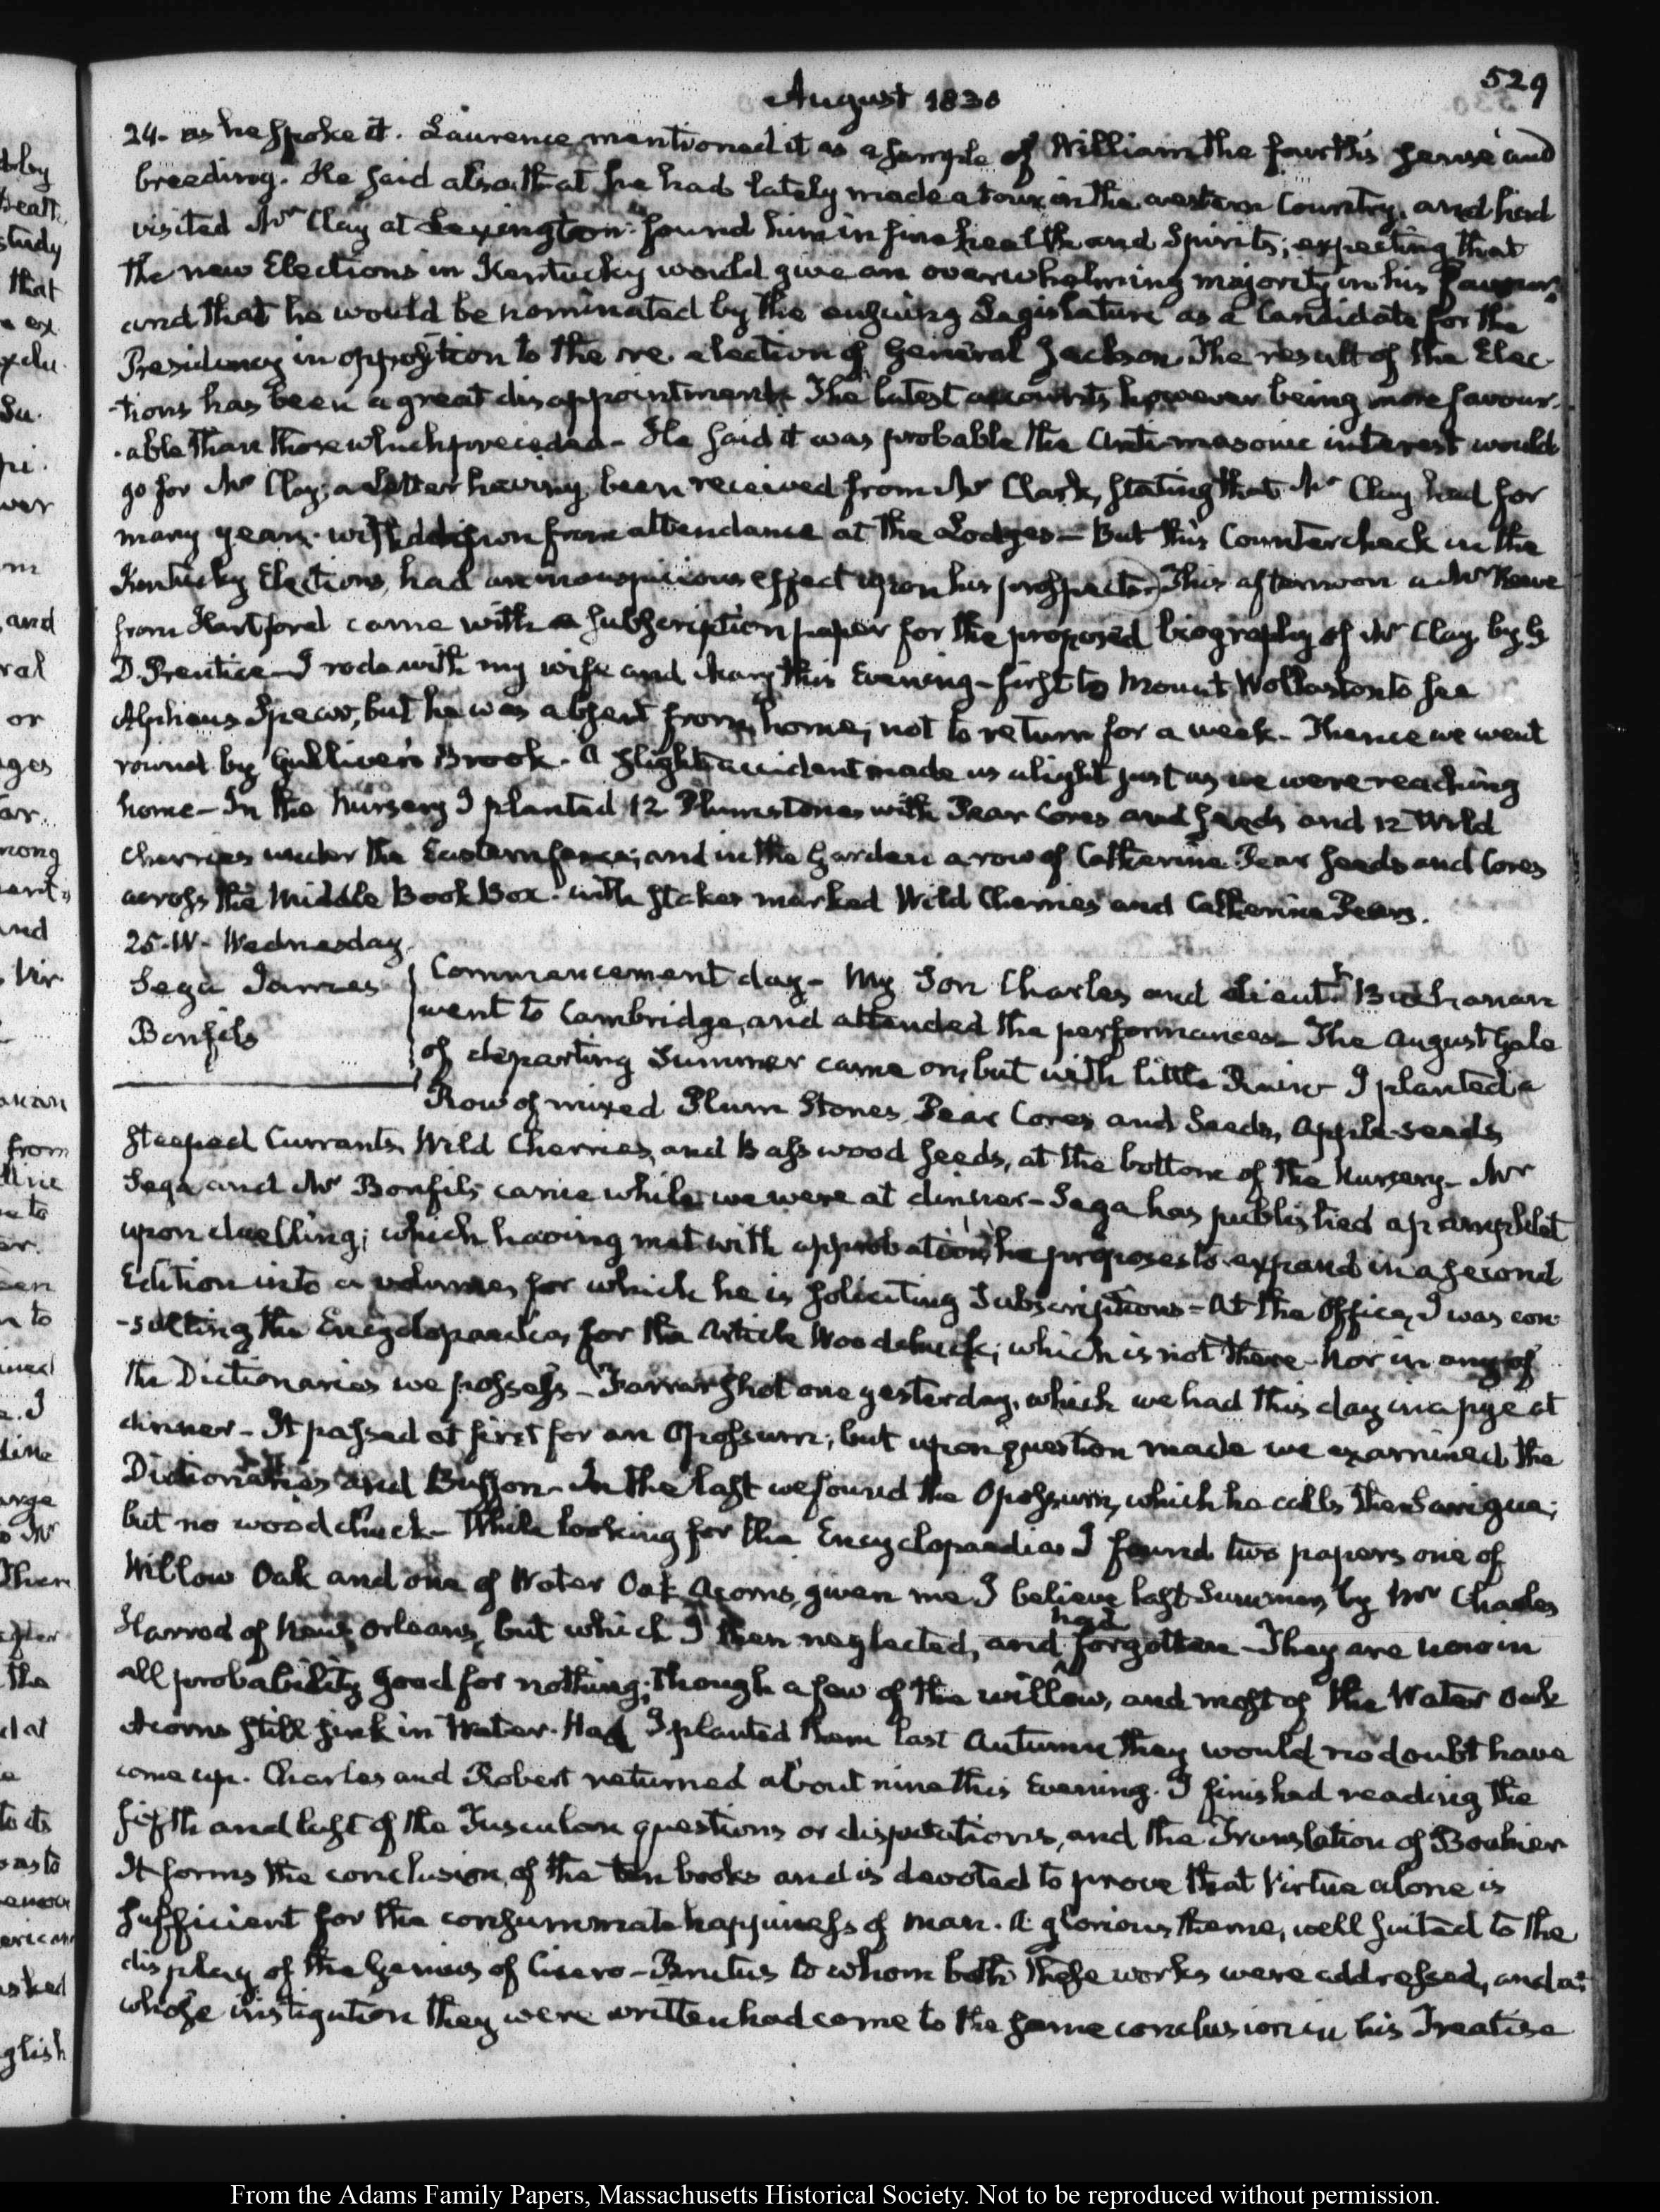 529
August 1830
24- as he spoke it. Laurence mentioned it as a sample of William the fourth's sense and
breeding. He said also that he had lately made a tour in the western Country, and had
visited Mr Clay at Lexington found him in fine health and Spirits; expecting that
the new Elections in Kentucky would give an overwhelming majority in his favour;
and that he would be nominated by the ensuing Legislature as a Candidate for the
Presidency in opposition to the re-election of General Jackson. The result of the Elec-
-tions has been a great disappointment. The latest accounts however being more favour-
-able than those which preceded- He said it was probable the Anti-masonic interest would
go for Mr Clay; a letter having been received from Mr Clark, stating that Mr Clay had for
many years withdrawn from attendance at the Lodges- But this Countercheck in the
Kentucky Elections, had an inauspicious effect upon his prospects. This afternoon a Mr
from Hartford came with a subscription paper for the proposed biography of Mr Clay by G
D. Prentice- I rode with my wife and Mary this Evening- first to Mount Wollaston to see
Alpheus Spear, but he was absent from home, not to return for a week- Thence we went
round by Gulliver's Brook. A slight accident made us alight just as we were reaching
home- In the Nursery I planted 12 Plumstones with Pear Cores and seeds and 12 Wild
Cherries under the Eastern fence; and in the Garden a row of Catherine Pear seeds and Cores
across the Middle Book Box. with stakes marked Wild Cherries and Catherine Pears.
25. W- Wednesday.
Sega James
Bonfils
Commencement day- My Son Charles and Lieutt. Buchanan
went to Cambridge, and attended the performances- The August Gale
of departing Summer came on, but with little Rain- I planted a
Row of mixed Plum Stones, Pear Cores and Seeds, Apple-seeds
steeped Currants, Wild Cherries, and Basswood seeds, at the bottom of the Nursery- Mr
Sega and Mr Bonfils came while we were at dinner- Sega has published a pamphlet
upon duelling; which having met with approbation, he proposes to expand in a second
Edition into a volume, for which he is soliciting Subscriptions- At the Office, I was con-
-sulting the Encyclopaedia, for the Article Woodchuck; which is not there- Nor in any of
the Dictionaries we possess- Farrar shot one yesterday, which we had this day in a pye at
dinner- It passed at first for an Opossum; but upon question made we examined the
Dictionaries and Buffon- In the last we found the Opossum, which he calls the Sarigue;
but no woodchuck- While looking for the Encyclopaedia I found two papers one of
Willow Oak and one of Water Oak Acorns, given me I believe last Summer, by Mr Charles
Harrod of New Orleans, but which I then neglected, and had forgotten- They are now in
all probability good for nothing; though a few of the willow, and most of the Water Oak
Acorns still sink in Water. Had I planted them last Autumn they would no doubt have
come up. Charles and Robert returned about nine this Evening. I finished reading the
fifth and last of the Tusculan questions or disputations, and the Translation of Bouhier
It forms the conclusion of the ten books and is devoted to prove that Virtue alone is
sufficient for the consummate happiness of man. A glorious theme, well suited to the
display of the Genius of Cicero- Brutus to whom both these works were addressed, and at
whose instigation they were written had come to the same conclusion in his Treatise
From the Adams Family Papers, Massachusetts Historical Society. Not to be reproduced without permission.